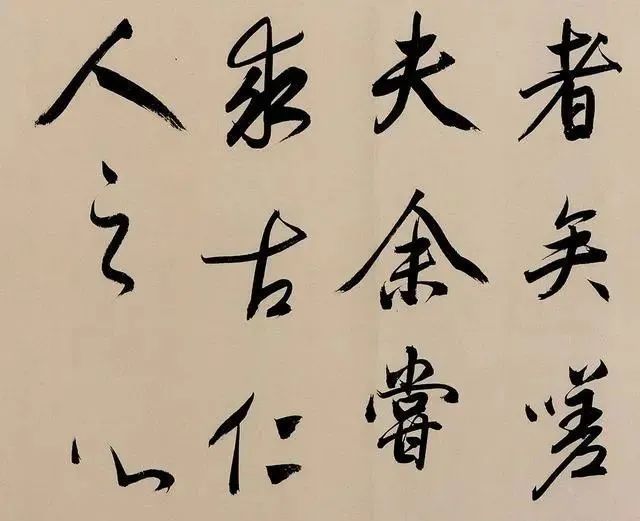 者矣嗟
夫余嘗
求古仁
人之心